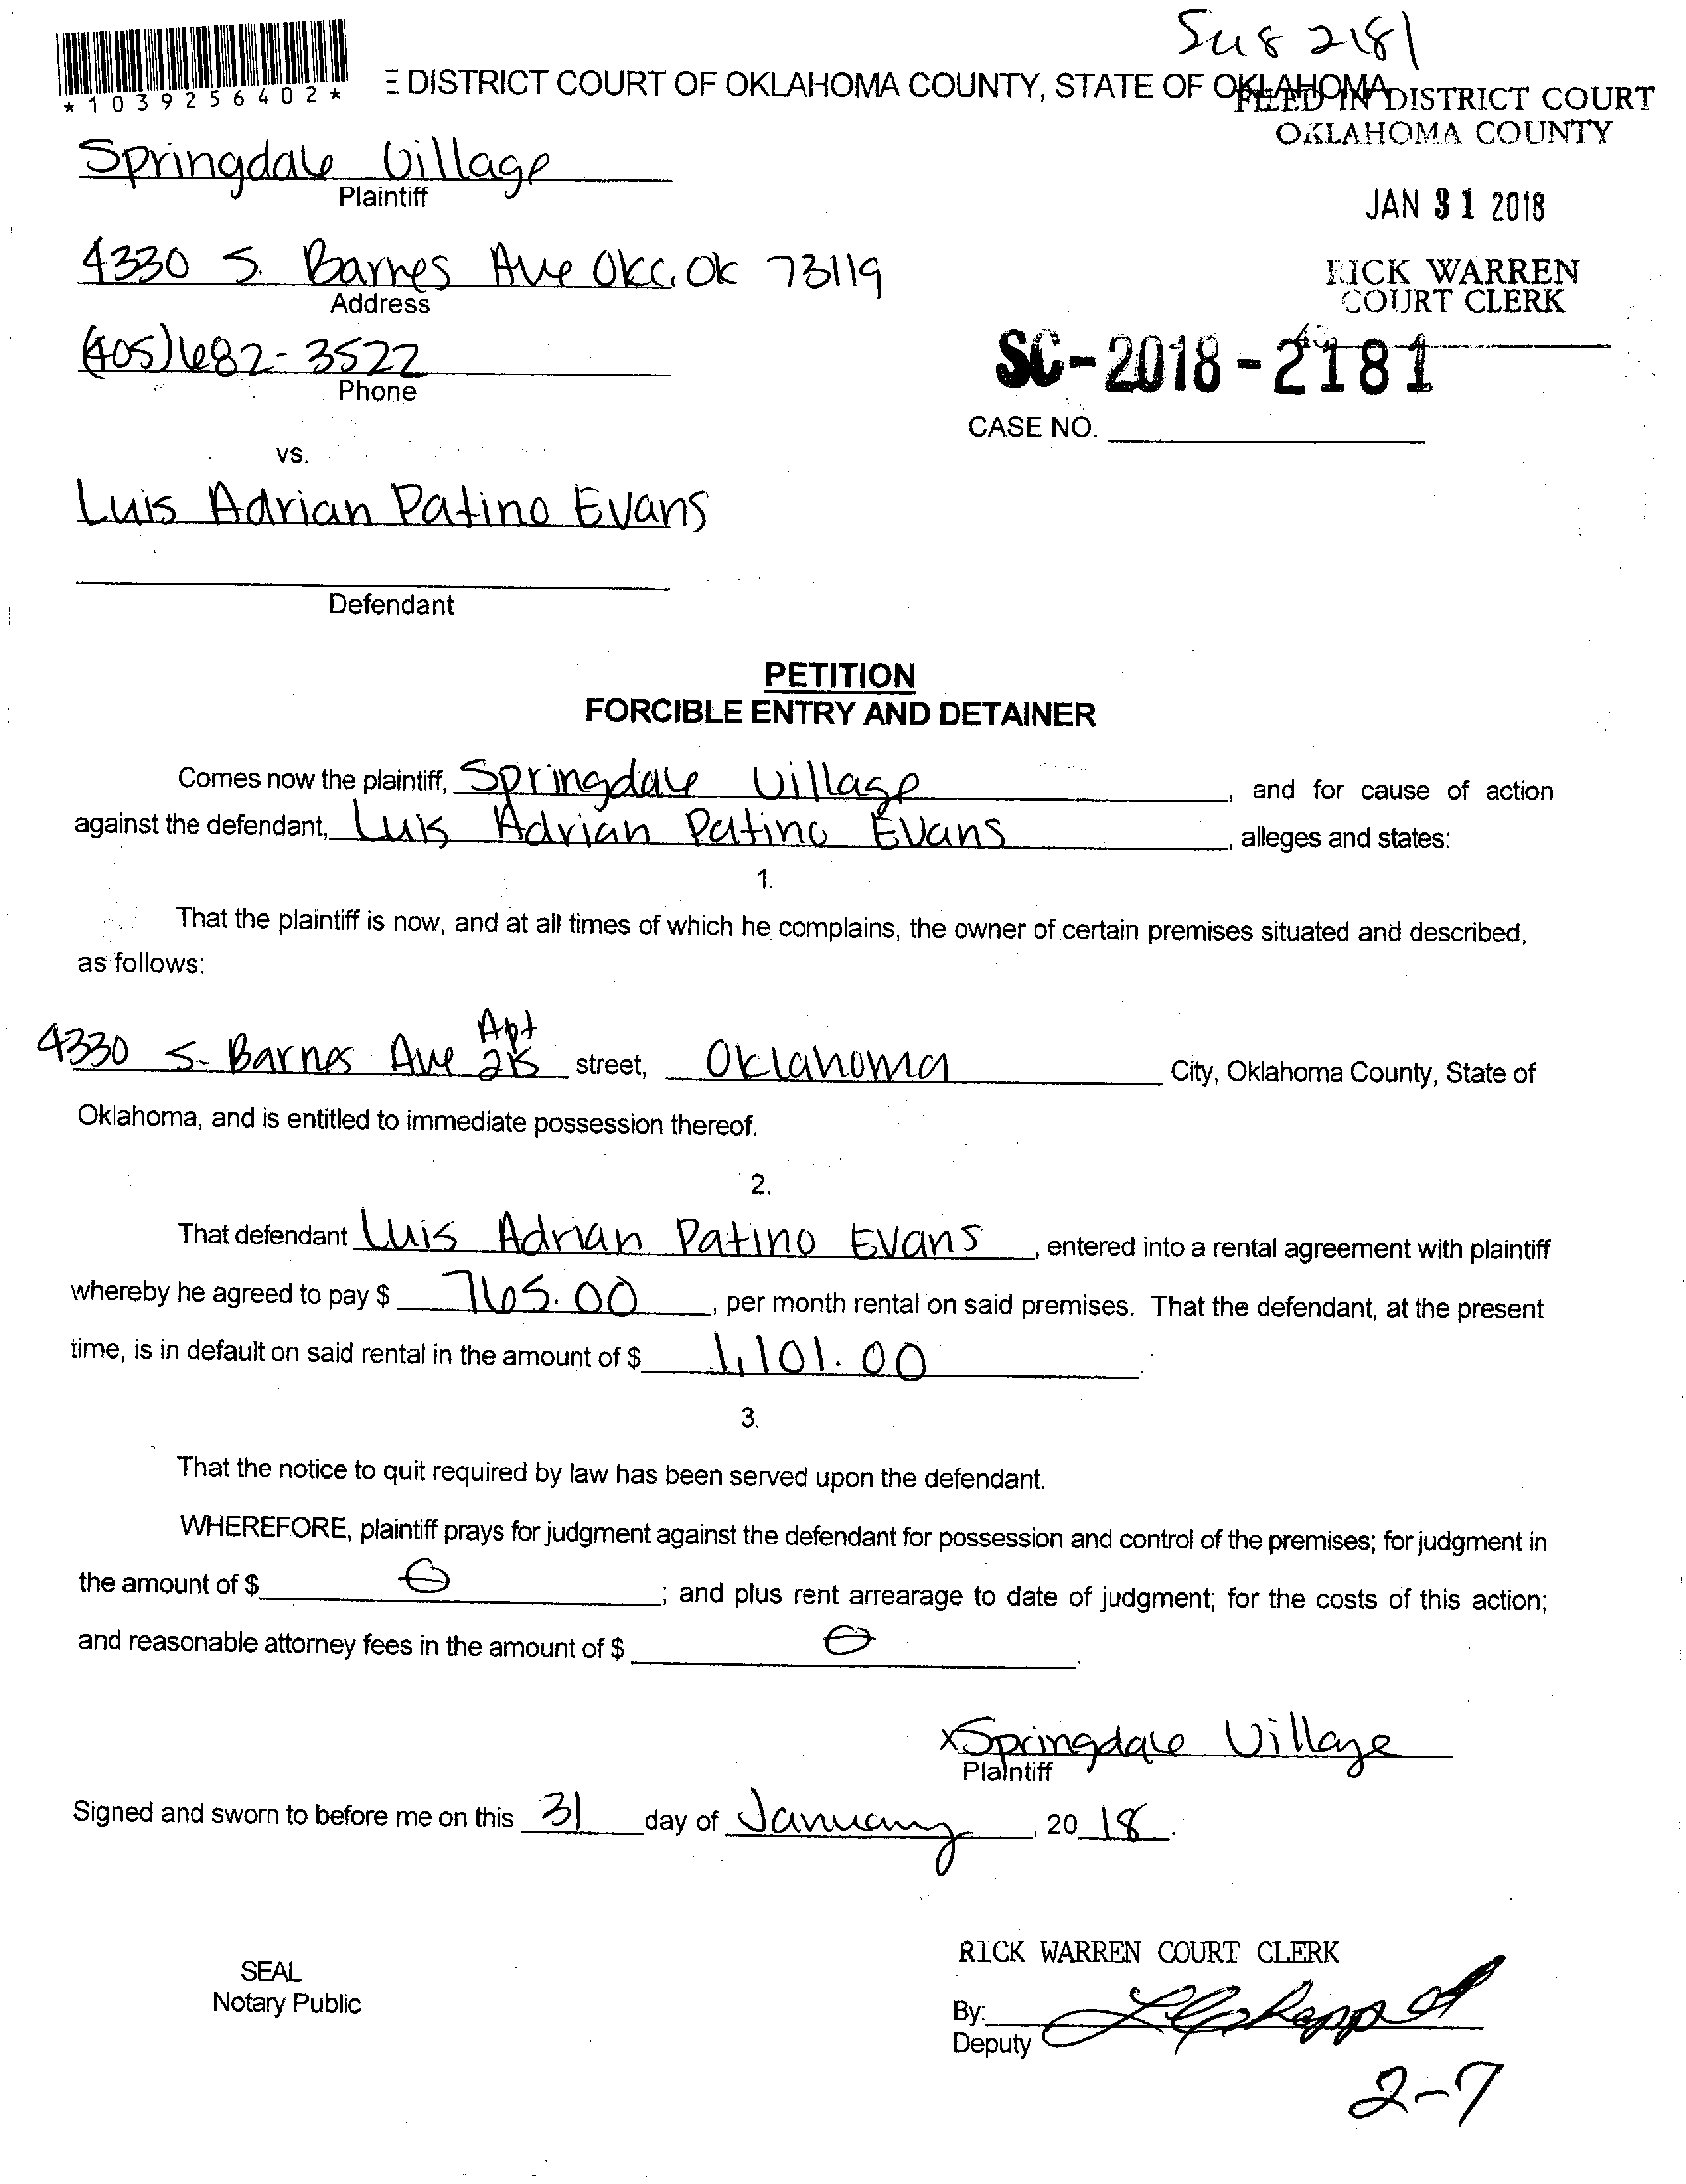 Su8 2181
*1039256402*
E DISTRICT COURT OF OKLAHOMA COUNTY, STATE OF OKLAHOMA
FILED IN DISTRICT COURT
OKLAHOMA COUNTY
Springdale Village
Plaintiff
JAN 31 2018
4330 S. Barnes Ave OKC, OK 73119
Address
RICK WARREN
COURT CLERK
(405)682-3522
Phone
SC-2018-2181
CASE NO.
vs.
Luis Adrian Patino Evans
Defendant
PETITION
FORCIBLE ENTRY AND DETAINER
Comes now the plaintiff, Springdale Village, and for cause of action
against the defendant, Luis Adrian Patino Evans, alleges and states:
1.
That the plaintiff is now, and at all times of which he complains, the owner of certain premises situated and described,
as follows:
4330 S. Barnes Ave Apt street, Oklahoma City, Oklahoma County, State of
Oklahoma, and is entitled to immediate possession thereof.
2.
That defendant Luis Adrian Patino Evans, entered into a rental agreement with plaintiff
whereby he agreed to pay $ 765.00, per month rental on said premises. That the defendant, at the present
time, is in default on said rental in the amount of $ 1,101.00.
3.
That the notice to quit required by law has been served upon the defendant.
WHEREFORE, plaintiff prays for judgment against the defendant for possession and control of the premises; for judgment in
the amount of $ 0; and plus rent arrearage to date of judgment; for the costs of this action;
and reasonable attorney fees in the amount of $ 0.
x Springdale Village
Plaintiff
Signed and sworn to before me on this 31 day of January, 20 18.
RICK WARREN COURT CLERK
SEAL
Notary Public
By:
Deputy
2-7